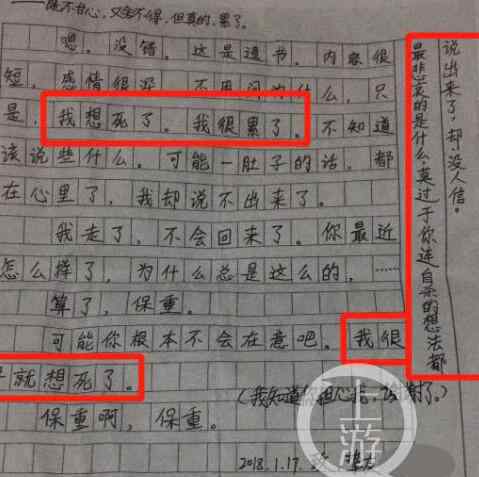 ——既不甘心，又舍不得，但真的，累了。
嗯。没错。这是遗书。内容很
短，感情很深，不用问为什么，只
是，我想死了。我很累了。不知道
该说些什么。可能一肚子的话，都
在心里了，我却说不出来了。
我走了，不会回来了。你最近
怎么样了，为什么总是这么的，……
算了，保重。
可能你根本不会在意吧。我很
就想死了。
（我知道你担心
谢谢了。）
保重啊，保重。
2018.1.17.
最悲哀的是什么，莫过于你连自杀的想法都
说出来了，却没人信。
上游